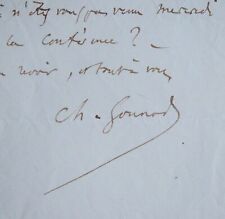 n'êtes vous pas venu mercredi
la Conférence ? –
revoir, et tout à vous
Ch. Gounod